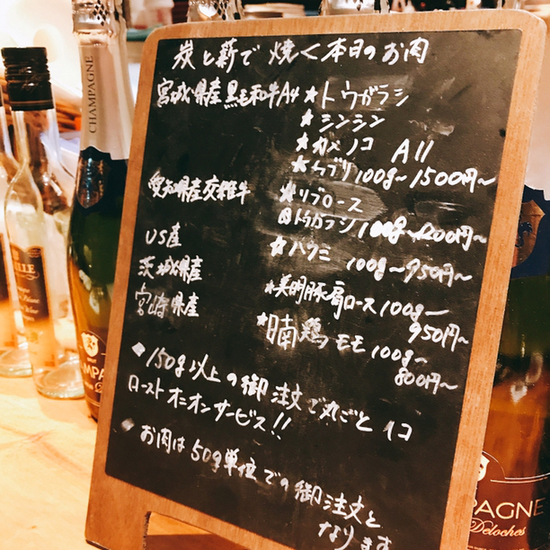 炭と薪で焼く本日のお肉
宮城県産黒毛和牛A4 ★トウガラシ
★シンシン
★カメノコ All
★クリ 100g〜1500円〜
愛知県産交雑牛 ★リブロース
トウガラシ 100g〜1200円〜
US産 ★ハラミ 100g〜950円〜
茨城県産 ★美明豚肩ロース 100g〜
950円〜
宮崎県産 ★日南鶏モモ 100g〜
800円〜
◆150g以上の御注文で丸ごと1コ
ローストオニオンサービス!!
◆お肉は50g単位での御注文と
なります
CHAMPAGNE
Deloches